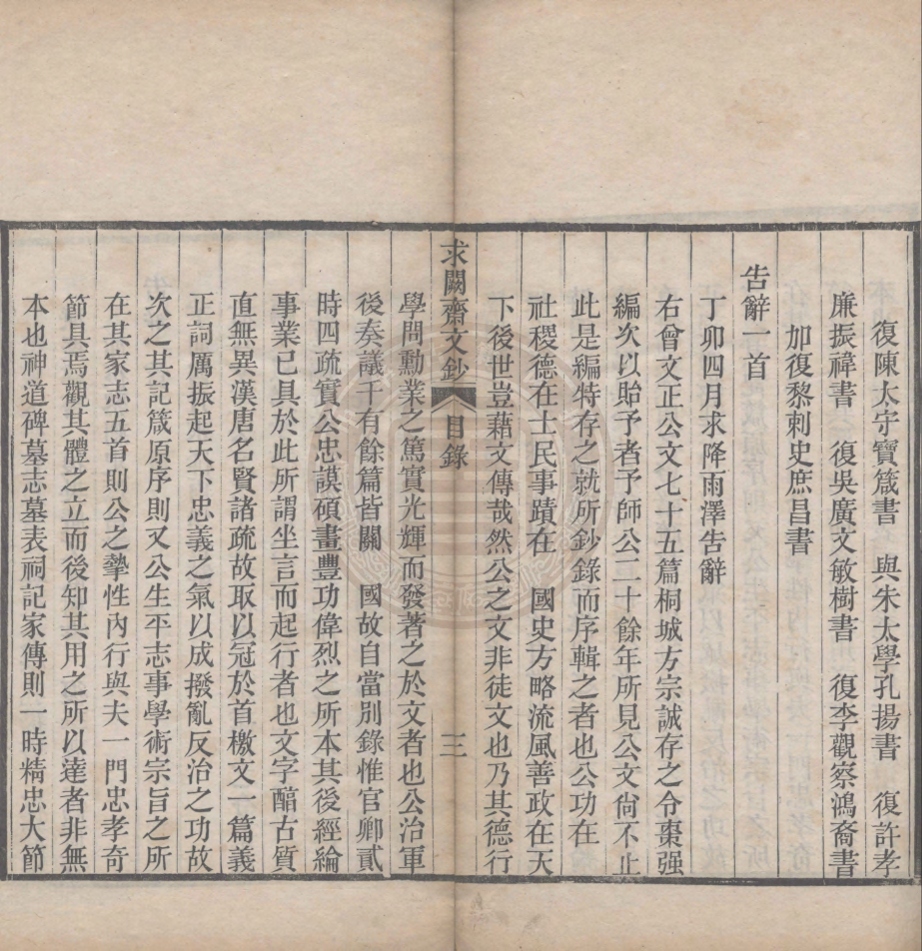 復陳太守寶箴書　與朱太學孔揚書　復許孝
廉振禕書　復吳廣文敏樹書　復李觀察鴻裔書
加復黎刺史庶昌書
告辭一首
丁卯四月求降雨澤告辭
右曾文正公文七十五篇桐城方宗誠存之令棗强
編次以貽予者予師公二十餘年所見公文尙不止
此是編特存之就所鈔錄而序輯之者也公功在
社稷德在士民事蹟在　國史方略流風善政在天
下後世豈藉文傳哉然公之文非徒文也乃其德行
求闕齋文鈔　目錄　三
學問勳業之篤實光輝而發著之於文者也公治軍
後奏議千有餘篇皆關　國故自當別錄惟官卿貳
時四疏實公忠謨碩畫豐功偉烈之所本其後經綸
事業已具於此所謂坐言而起行者也文字醕古質
直無異漢唐名賢諸疏故取以冠於首檄文一篇義
正詞厲振起天下忠義之氣以成撥亂反治之功故
次之其記箴原序則又公生平志事學術宗旨之所
在其家志五首則公之摯性內行與夫一門忠孝奇
節具焉觀其體之立而後知其用之所以達者非無
本也神道碑墓志墓表祠記家傳則一時精忠大節